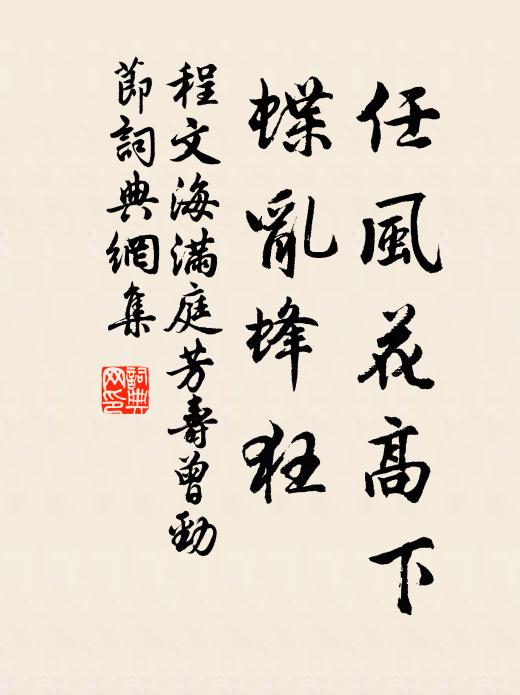 任風花高下
蝶亂蜂狂
程文海滿庭芳壽曾勁
節詞典網集
詞典網印